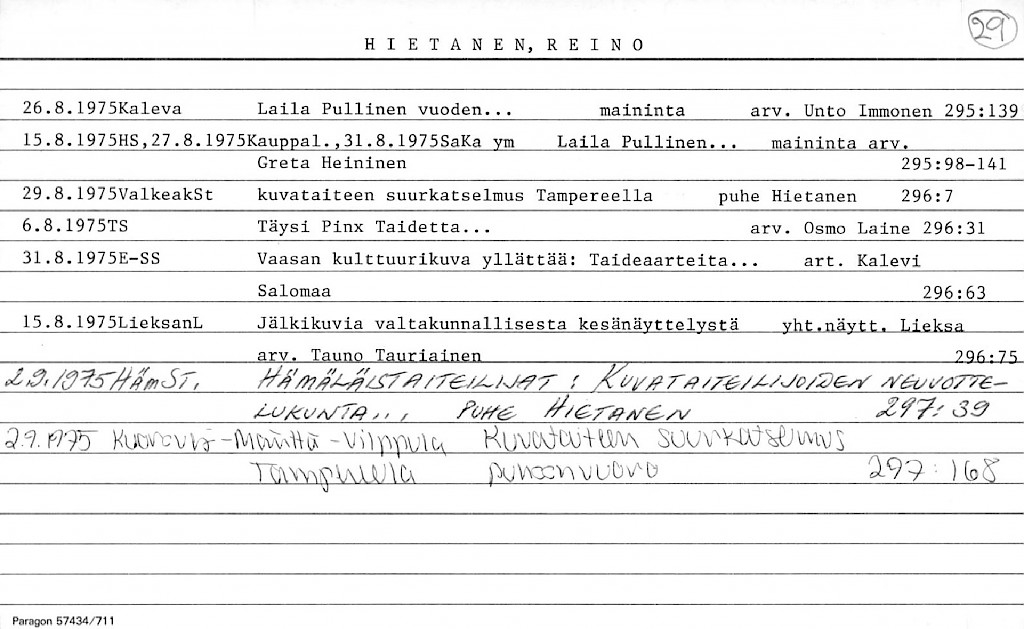 29
HIETANEN, REINO
26.8.1975Kaleva Laila Pullinen vuoden... maininta arv. Unto Immonen 295:139
15.8.1975HS,27.8.1975Kauppal.,31.8.1975SaKa ym Laila Pullinen... maininta arv.
Greta Heininen 295:98-141
29.8.1975ValkeakSt kuvataiteen suurkatselmus Tampereella puhe Hietanen 296:7
6.8.1975TS Täysi Pinx Taidetta... arv. Osmo Laine 296:31
31.8.1975E-SS Vaasan kulttuurikuva yllättää: Taideaarteita... art. Kalevi
Salomaa 296:63
15.8.1975LieksanL Jälkikuvia valtakunnallisesta kesänäyttelystä yht.näytt. Lieksa
arv. Tauno Tauriainen 296:75
2.9.1975 HÄMST. HÄMÄLÄISTAITEILIJAT : KUVATAITEILIJOIDEN NEUVOTTE-
LUKUNTA... PUHE HIETANEN 297:39
2.9.1975 Kuorevesi-Mänttä-Vilppula Kuvataiteen suurkatselmus
Tampereella puheenvuoro 297:168
Paragon 57434/711